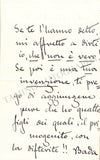 Se te l'hanno detto,
mi affretto a dirti
io, che non è vero
Se poi è una mia
invenzione, ti prego
di aggiungere
pure che ho quattro
figli dei quali il pri-
mogenito, con
la difterite!! Bada